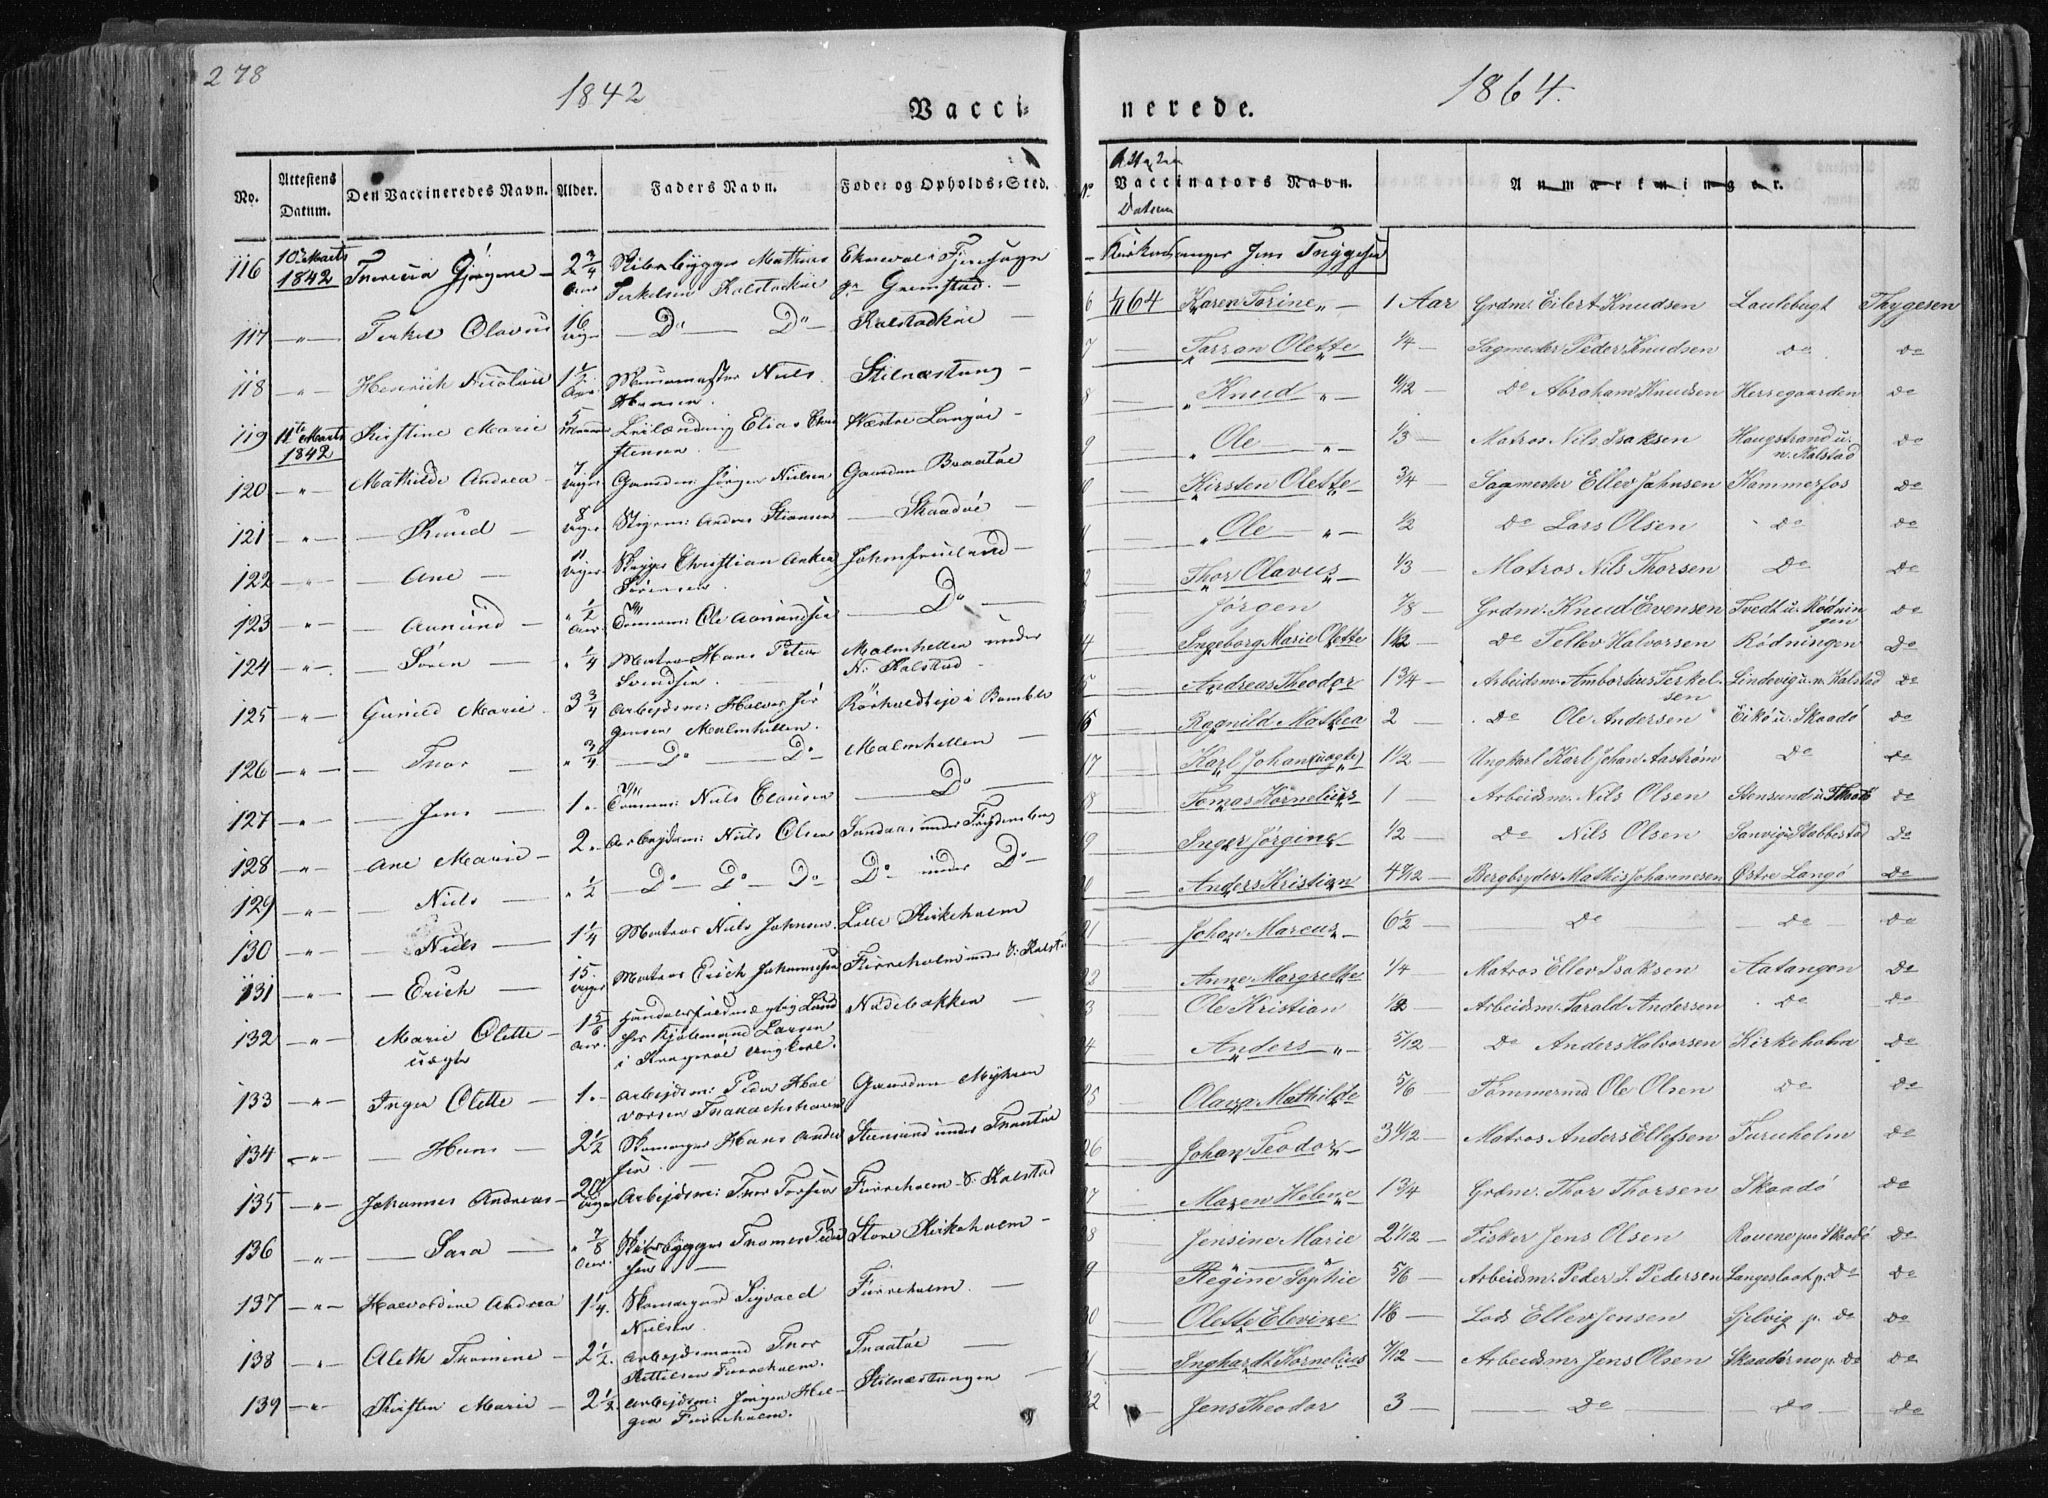 278
1842
Vacci-
No. Attestens Datum. Den Vaccineredes Navn. Alder. Faders Navn. Føde: og Opholds-Sted.
116 10de Marts 1842 Gjørgine 2 3/4 Aar Skibsbygger Mathias
Terkelsen Kalstadkiil
Grimstad.
117 " Terkel Olavus 16 Uger Do Do Kalstadkiil
118 " Henrich Nicolai 1 1/2 Aar Muurmester Niels Hansen Stilnæstang
119 11te Marts 1842 Kirstine Marie 5 Leilænding Elias Chri
stensen Westre Langøe
120 " Mathilde Andrea 7 Uger Gaardm: Jørgen Nielsen Gaarden Braatøe
121 " Knud 8 Uger Anders Stiansen Skaadøe
122 " Ane 11 Uger Christian Anker
Sørensen Johmfruland
123 " Aanund " 1/2 Aar Tømmerm: Ole Aanundsen Do
124 " Søren " 1/4 Matros Hans Peter
Svendsen Malmhellen under
N: Kalstad
125 " Gunild Marie 3 3/4 Arbejdsm: Halvor Jør
gensen Malmhellen Rørholdteje i Bamble
126 " Thor " 3/4 Do Do Malmhellen
127 " Jens 1 " Tømmerm: Niels Clausen Do
128 " Ane Marie 2 " Arbejdsm: Niels Olsen Sandaas under Frydensborg
129 " Niels " 1/2 Do Do Do Do under Do
130 " Niels 1 1/4 Matros Niels Johnsen Lille Kirkeholm
131 " Erich 15 Uger Matros Erich Johannesen Furreholm under S: Kalstad
132 " Marie Olette
uægte 1 5/6 Aar. Lund
Larsen
i Kragerøe Ungkarl. Nüdebakken
133 " Inger Olette 1 " Arbejdsm: Peder Hal
vorsen Gaarden Myhren
134 " Hans 2 1/2 Skomager Hans Ander
sen Steensund under Traatøe
135 " Johannes Andreas 20 Uger Arbejdsm: Thor Torsen Furreholm S: Kalstad
136 " Sara " 7/8 Aar. Skibsbygger Thomas Peder
sen Store Kirkeholm
137 " Halvordine Andrea 1 1/4 Skomager Sigvald
Nielsen Furreholm
138 " Aleth Thomine 2 1/2 Arbejdsmand Thor
Kittilsen Furreholm. Traatøe
139 " Kirsten Marie 2 1/2 Arbejdsm: Jørgen Hel
gen Furreholm. Stilnæstangen
1864.
nerede.
No Datum Vaccinators Navn. Anmærkninger.
Kirkesanger Jens Thygesen
6 64 Karen Torine 1 Aar Grdm. Eilert Knudsen Laulebugt Thygesen
7 Tarran Olette 1/4 Sagmester Peder Knudsen do do
8 Knud 4/12 Do Abraham Knudsen Herregaarden do
9 Ole 1/3 Matros Nils Isaksen Haugstrand u.
n. Kalstad do
0 Kirsten Olette 3/4 Sagmester Ellev Johnsen Kammerfos do
1 Ole 1/2 Do Lars Olsen do do
2 Thor Olavus 1/3 Matros Nils Thorsen Do do
Jørgen 7/8 Grdm. Knud Evensen Tvedt u. Rødnin
gen do
4 Ingeborg Marie Olette 1 1/2 Do Tellev Halvorsen Rødningen Do
5 Andreas Theodor 1 3/4 Arbeidsm. Ambortius Terkel
sen Lindevig u. n. Kalstad do
16 Ragnild Mathea 2 Do Ole Andersen Eikø u. Skaadø do
17 Karl Johan (uægte) 1 1/2 Ungkarl Karl Johan Aastrøm Do do
18 Tomas Kornelius 1 Arbeidsm. Nils Olsen Stensund u. Thotø do
9 Inger Jørgine 1/2 Do Nils Olsen Sanvig u. Stabbestad do
0 Anders Kristian 4 4/12 Bergbryder Mathis Johannesen Østre Langø do
21 Johan Marcus 6 1/2 Do Do do
22 Anne Margrethe 1/4 Matros Ellev Isaksen Aatangen Do
3 Ole Kristian 1/2 Arbeidsm. Tarald Andersen Do do
4 Anders 5/12 Do Anders Halvorsen Kirkeholm do
25 Olava Mathilde 5/6 Tømmermd Ole Olsen do do
26 Johan Teodor 3 1/12 Matros Anders Ellefsen Furuholm do
7 Maren Helene 1 3/4 Grdm. Thor Thorsen Skaadø do
8 Jensine Marie 2 1/12 Fisker Jens Olsen Ravene paa Skaadø do
9 Regine Sophie 5/6 Arbeidsm. Peder S. Pedersen Langesloak p. Do do
30 Olette Elevine 1 1/6 Lods Ellev Jensen Sjelvig p. do do
1 Inghardt Kornelius 7/12 Arbeidsm. Jens Olsen p. do do
32 Jens Theodor 3 Do do do